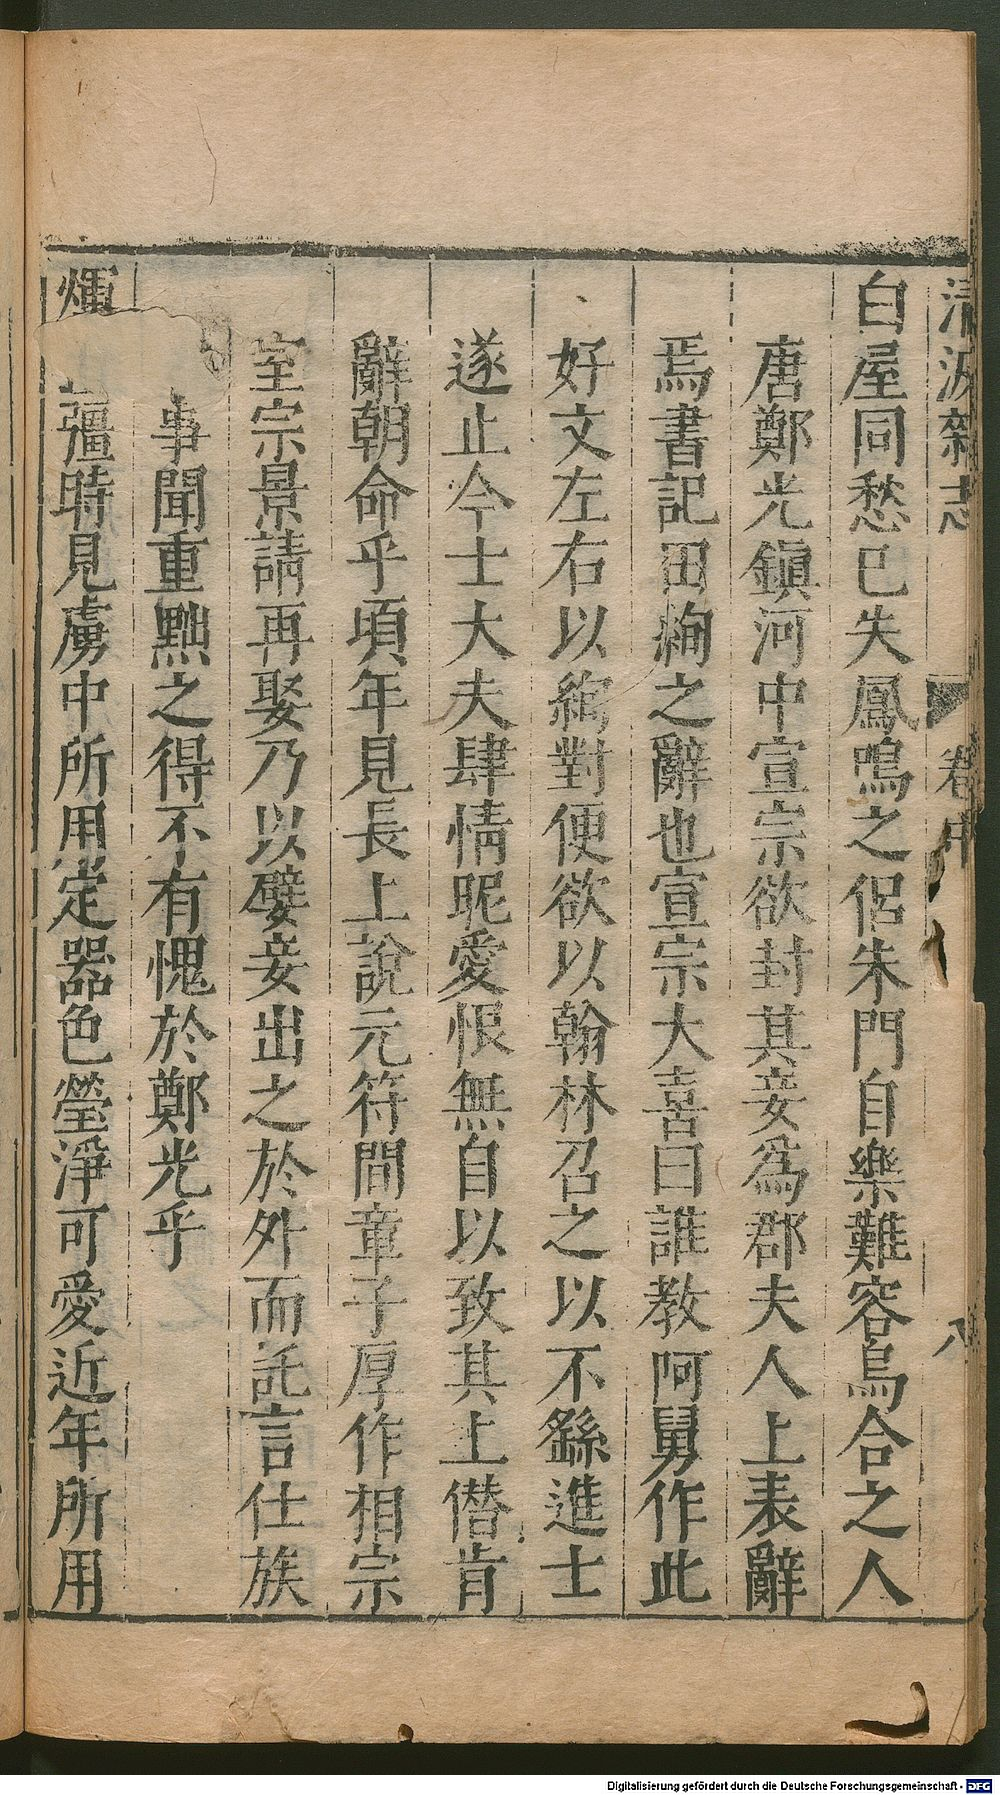 清波雜志
卷中
八
白屋同愁已失鳳鳴之侣朱門自樂難容烏合之人
唐鄭光鎮河中宣宗欲封其妾爲郡夫人上表辭
焉書記田絢之辭也宣宗大喜曰誰教阿舅作此
好文左右以絢對便欲以翰林召之以不繇進士
遂止今士大夫肆情昵愛恨無自以致其上僭肯
辭朝命乎頃年見長上說元符間章子厚作相宗
室宗景請再娶乃以嬖妾出之於外而託言仕族
事聞重黜之得不有愧於鄭光乎
煇 疆時見虜中所用定器色瑩淨可愛近年所用
Digitalisierung gefördert durch die Deutsche Forschungsgemeinschaft - DFG